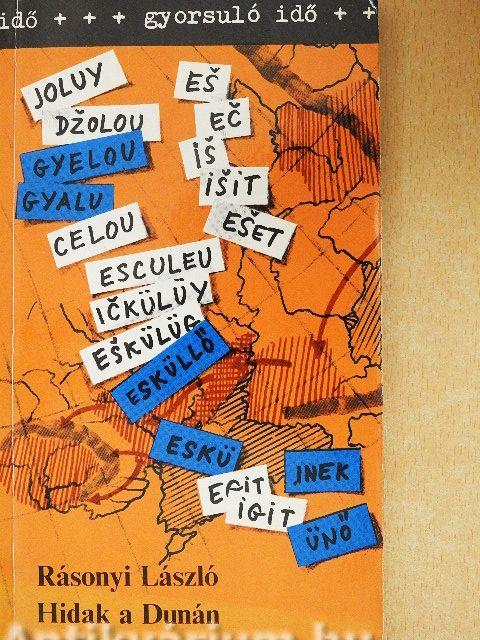 idő + + + gyorsuló idő + +
JOLUY
EŠ
DŽOLOU
EČ
GYELOU
IŠ
GYALU
IŠIT
CELOU
EŠET
ESCULEU
IČKÜLÜY
EŠKÜLÜG
ESKÜLLŐ
ESKÜ
INEK
EFIT
IGIT
ÜNŐ
Rásonyi László
Hidak a Dunán
Antikvárium.hu